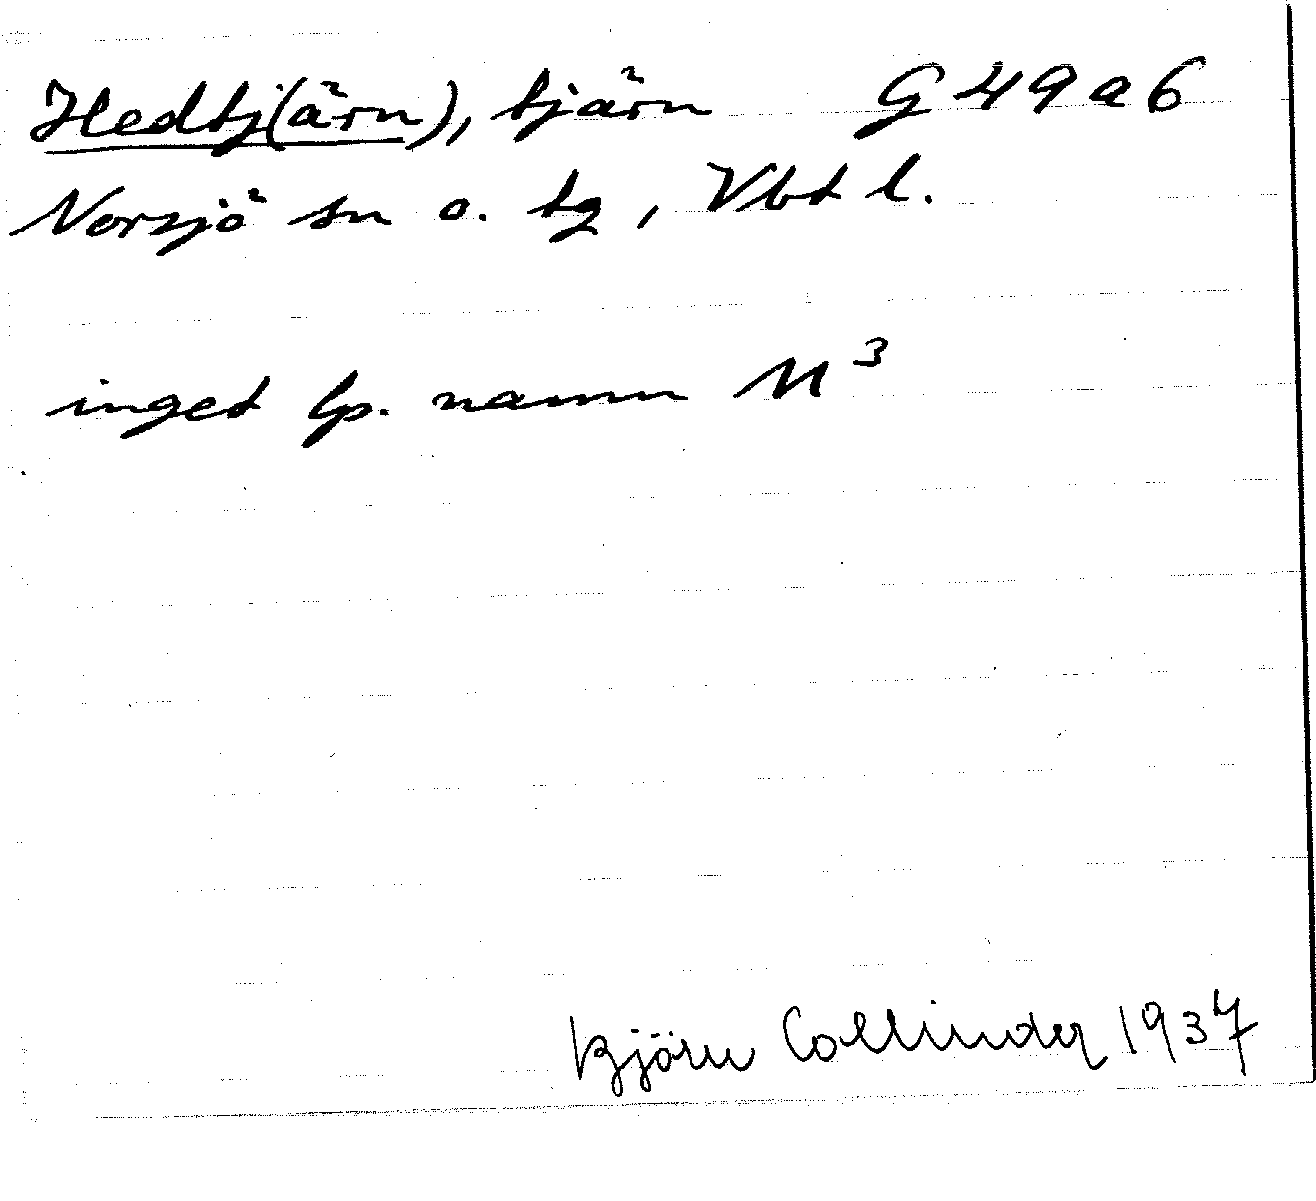 Hedtj(ärn), tjärn G 49 a 6
Norsjö sn o. tg, Vbt l.
inget lp. namn M³
Björn Collinder 1937